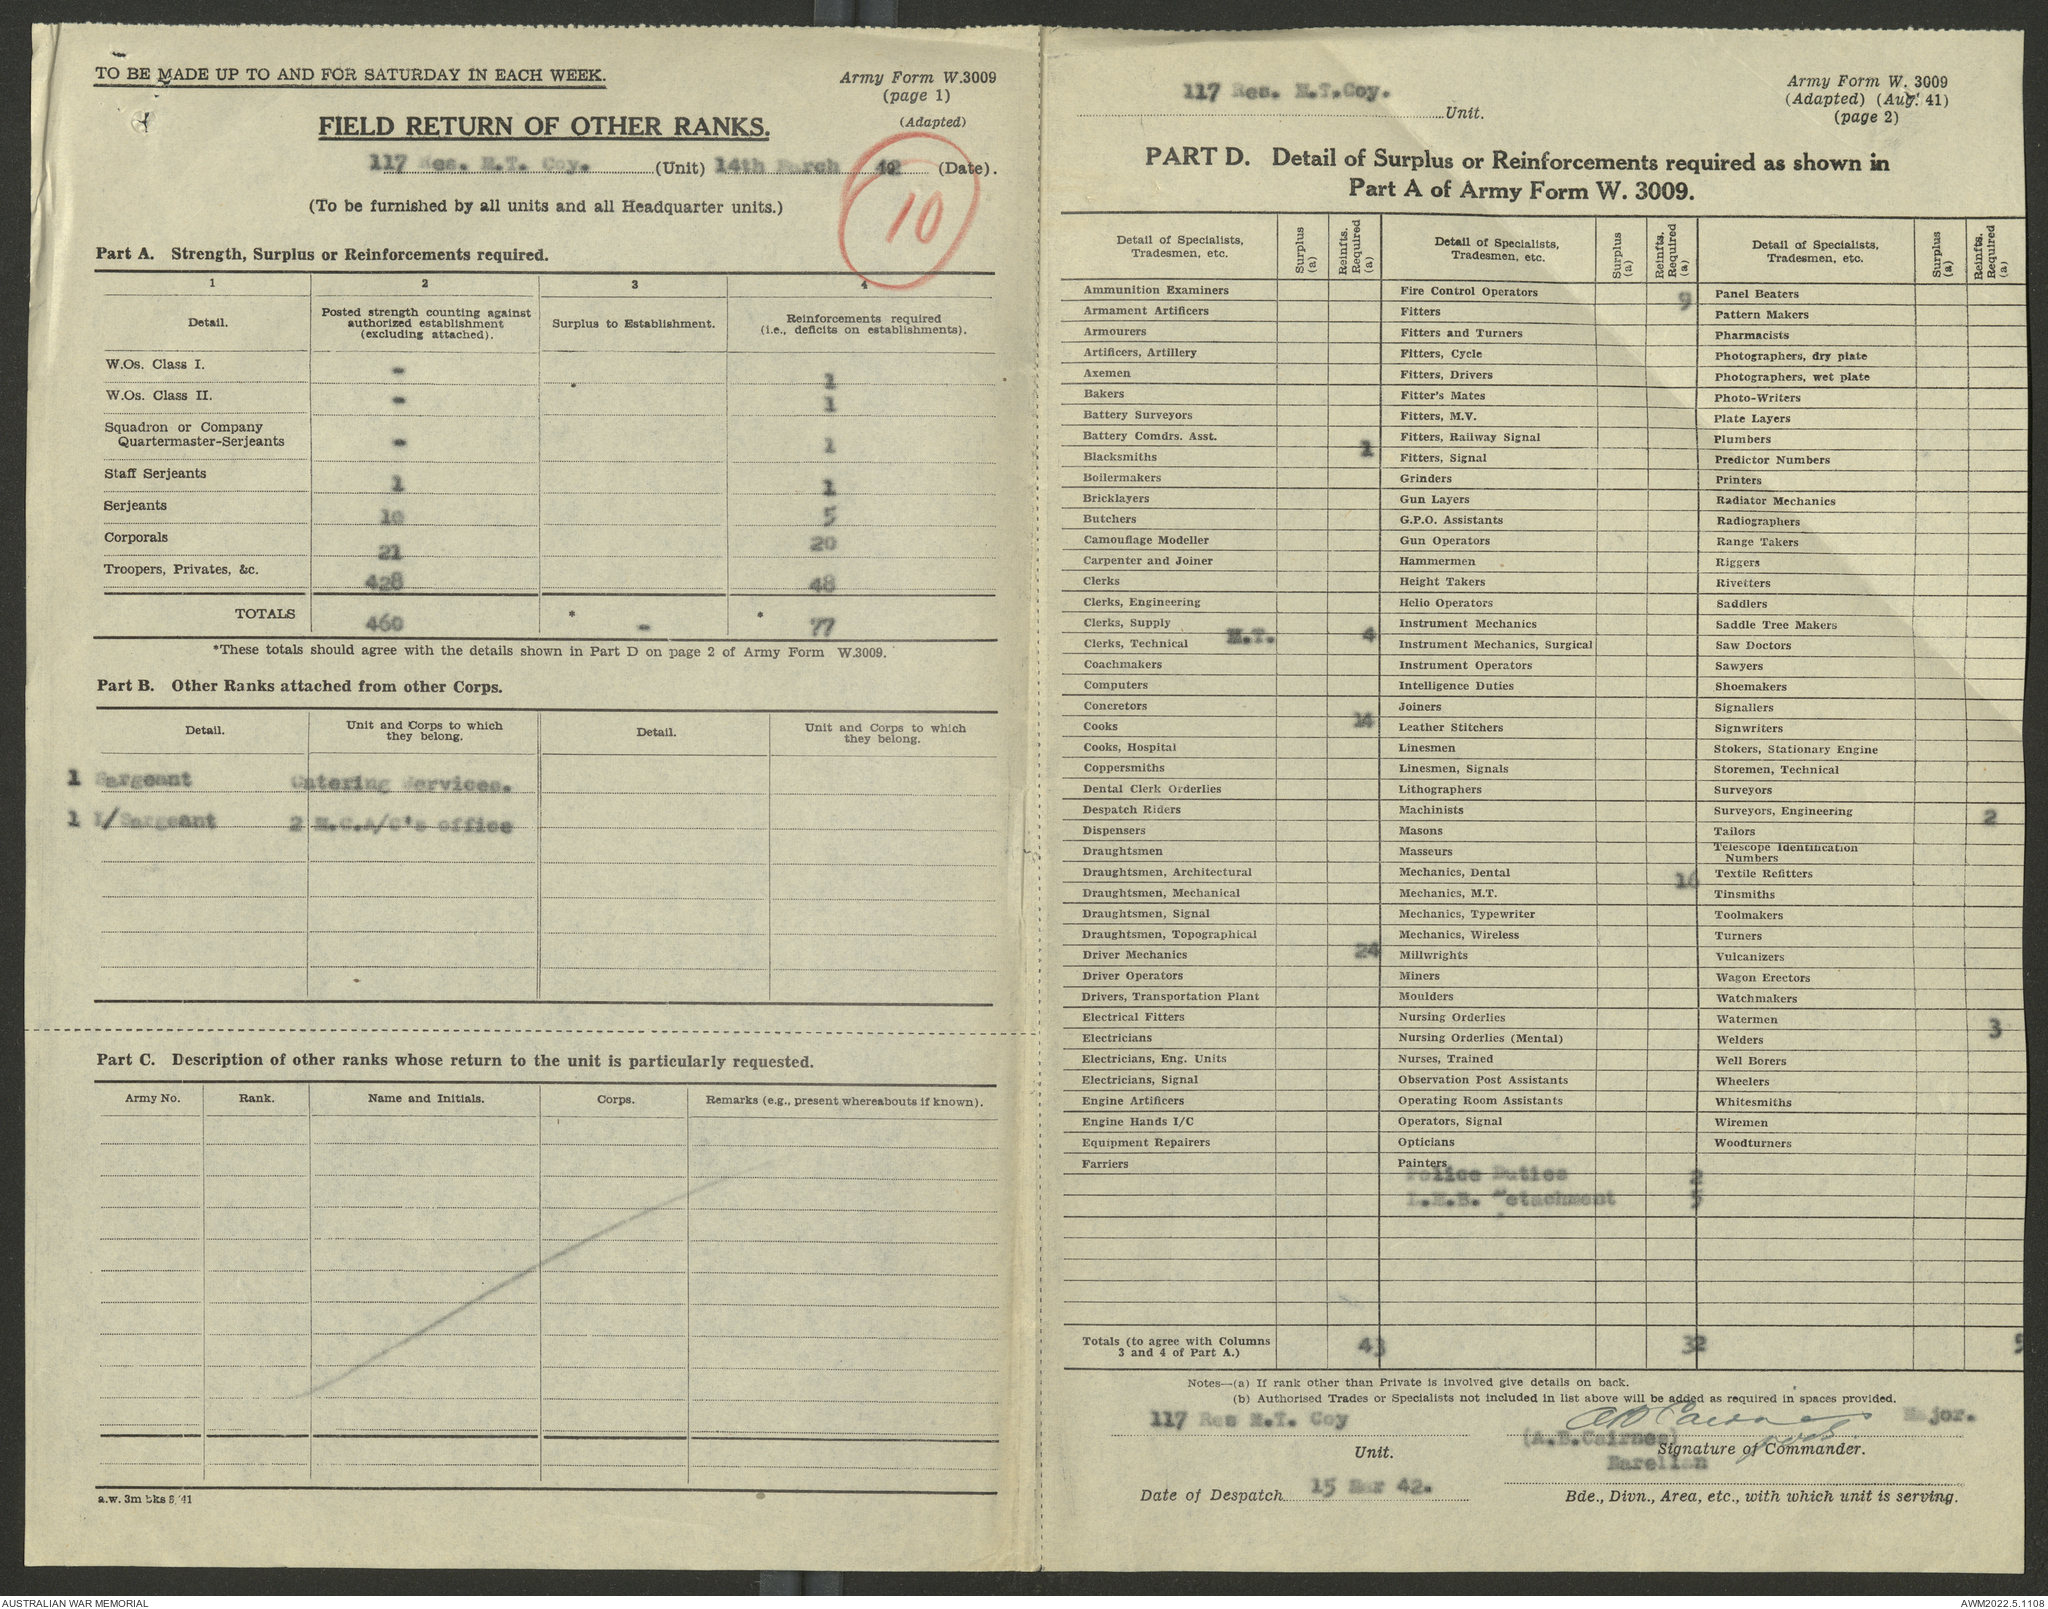 TO BE MADE UP TO AND FOR SATURDAY IN EACH WEEK.
Army Form W.3009
(page 1)
(Adapted)
FIELD RETURN OF OTHER RANKS.
117 Res. M.T. Coy. (Unit) 14th March 1942 (Date).
10
(To be furnished by all units and all Headquarter units.)
Part A. Strength, Surplus or Reinforcements required.
1 2 3 4
Detail. Posted strength counting against authorized establishment (excluding attached). Surplus to Establishment. Reinforcements required (i.e., deficits on establishments).
W.Os. Class I. - 1
W.Os. Class II. - 1
Squadron or Company
Quartermaster-Serjeants - 1
Staff Serjeants 1 1
Serjeants 10 5
Corporals 21 20
Troopers, Privates, &c. 428 48
TOTALS 460 * - * 77
*These totals should agree with the details shown in Part D on page 2 of Army Form W.3009.
Part B. Other Ranks attached from other Corps.
Detail. Unit and Corps to which they belong. Detail. Unit and Corps to which they belong.
1 Sargeant Catering Services.
1 L/Sargeant 2 M.C.A/C's office
Part C. Description of other ranks whose return to the unit is particularly requested.
Army No. Rank. Name and Initials. Corps. Remarks (e.g., present whereabouts if known).
a.w. 3m bks 8/41
117 Res. M.T.Coy. Unit.
Army Form W. 3009
(Adapted) (Aug. 41)
(page 2)
PART D. Detail of Surplus or Reinforcements required as shown in
Part A of Army Form W. 3009.
Detail of Specialists, Tradesmen, etc. Surplus (a) Reinfts. Required (a) Detail of Specialists, Tradesmen, etc. Surplus (a) Reinfts. Required (a) Detail of Specialists, Tradesmen, etc. Surplus (a) Reinfts. Required (a)
Ammunition Examiners
Armament Artificers
Armourers
Artificers, Artillery
Axemen
Bakers
Battery Surveyors
Battery Comdrs. Asst.
Blacksmiths 1
Boilermakers
Bricklayers
Butchers
Camouflage Modeller
Carpenter and Joiner
Clerks
Clerks, Engineering
Clerks, Supply
Clerks, Technical M.T. 4
Coachmakers
Computers
Concretors
Cooks 14
Cooks, Hospital
Coppersmiths
Dental Clerk Orderlies
Despatch Riders
Dispensers
Draughtsmen
Draughtsmen, Architectural
Draughtsmen, Mechanical
Draughtsmen, Signal
Draughtsmen, Topographical
Driver Mechanics 24
Driver Operators
Drivers, Transportation Plant
Electrical Fitters
Electricians
Electricians, Eng. Units
Electricians, Signal
Engine Artificers
Engine Hands I/C
Equipment Repairers
Farriers
Fire Control Operators
Fitters 9
Fitters and Turners
Fitters, Cycle
Fitters, Drivers
Fitter's Mates
Fitters, M.V.
Fitters, Railway Signal
Fitters, Signal
Grinders
Gun Layers
G.P.O. Assistants
Gun Operators
Hammermen
Height Takers
Helio Operators
Instrument Mechanics
Instrument Mechanics, Surgical
Instrument Operators
Intelligence Duties
Joiners
Leather Stitchers
Linesmen
Linesmen, Signals
Lithographers
Machinists
Masons
Masseurs
Mechanics, Dental
Mechanics, M.T. 16
Mechanics, Typewriter
Mechanics, Wireless
Millwrights
Miners
Moulders
Nursing Orderlies
Nursing Orderlies (Mental)
Nurses, Trained
Observation Post Assistants
Operating Room Assistants
Operators, Signal
Opticians
Painters
Police Duties 2
L.M.B. Detachment 5
Panel Beaters
Pattern Makers
Pharmacists
Photographers, dry plate
Photographers, wet plate
Photo-Writers
Plate Layers
Plumbers
Predictor Numbers
Printers
Radiator Mechanics
Radiographers
Range Takers
Riggers
Rivetters
Saddlers
Saddle Tree Makers
Saw Doctors
Sawyers
Shoemakers
Signallers
Signwriters
Stokers, Stationary Engine
Storemen, Technical
Surveyors
Surveyors, Engineering
Tailors 2
Telescope Identification
Numbers
Textile Refitters
Tinsmiths
Toolmakers
Turners
Vulcanizers
Wagon Erectors
Watchmakers
Watermen
Welders 3
Well Borers
Wheelers
Whitesmiths
Wiremen
Woodturners
Totals (to agree with Columns
3 and 4 of Part A.) 43 32 5
Notes—(a) If rank other than Private is involved give details on back.
(b) Authorised Trades or Specialists not included in list above will be added as required in spaces provided.
117 Res M.T. Coy Unit.
Major.
(A.B.Cairnes)
Signature of Commander.
Narellan
Date of Despatch 15 Mar 42.
Bde., Divn., Area, etc., with which unit is serving.
AUSTRALIAN WAR MEMORIAL
AWM2022.5.1108